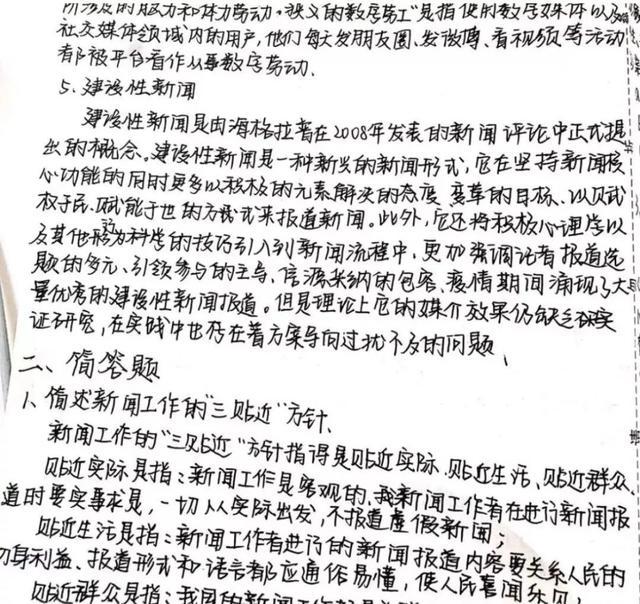 所涉及的脑力和体力劳动。狭义的数字劳工"是指使用数字媒体以及
社交媒体领域内的用户，他们每天发朋友圈、发微博、看视频等活动
都被平台看作从事数字劳动.
5. 建设性新闻
建设性新闻是由海格拉普在2008年发表的新闻评论中正式提
出的概念。建设性新闻是一种新兴的新闻形式，它在坚持新闻核
心功能的同时更多以积极的元素解决的态度、变革的目标、以及赋
权于民、赋能于他的方式来报道新闻。此外，它还将积极心理学以
及其他行为科学的技巧引入到新闻流程中，更加强调记者报道选
题的多元、引领参与的主导、信源采纳的包容、疫情期间涌现了大
量优秀的建设性新闻报道。但是理论上它的媒介效果仍缺乏实
证研究，在实践中也存在着方案导向过犹不及的问题、
二、简答题
1、简述新闻工作的"三贴近"方针.
新闻工作的"三贴近"方针指得是贴近实际、贴近生活、贴近群众、
贴近实际是指：新闻工作是客观的、我新闻工作者在进行新闻报
道时要实事求是，一切从实际出发，不报道虚假新闻；
贴近生活是指：新闻工作者进行的新闻报道内容要关系人民的
切身利益、报道形式和语言都应通俗易懂，使人民喜闻乐见；
贴近群众是指：我国的新闻工作